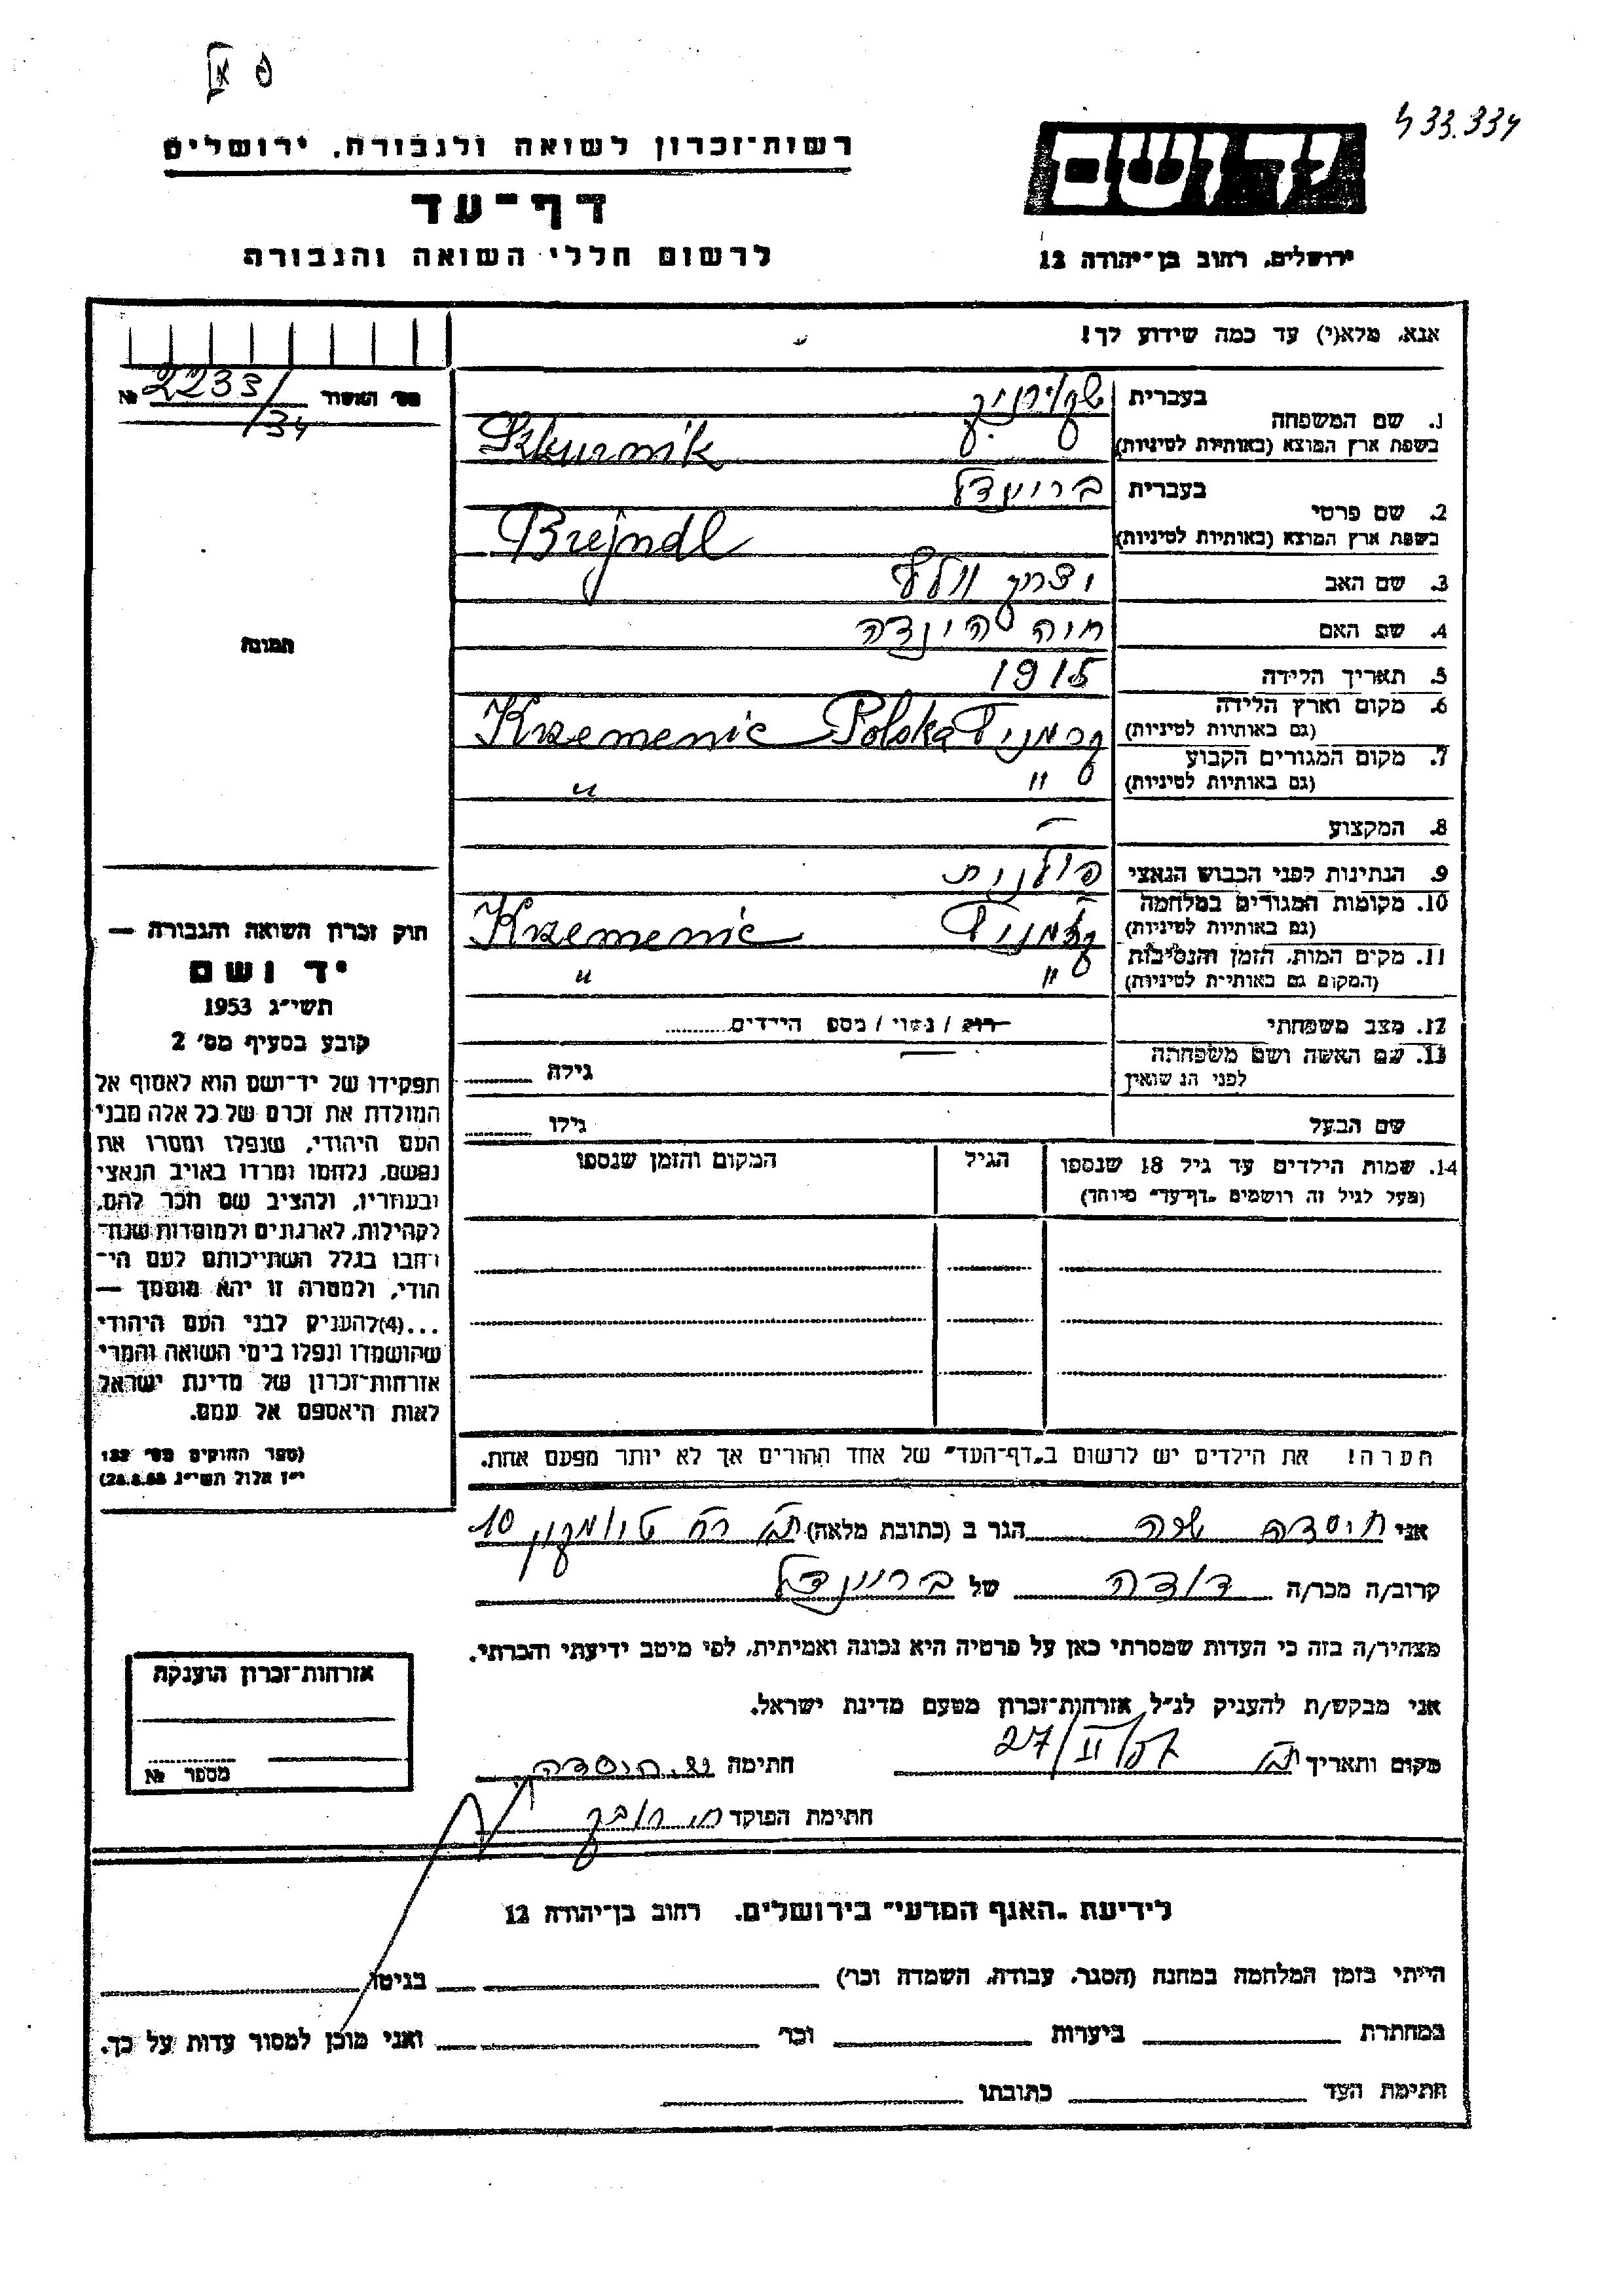 433.334
רשות־זכרון לשואה ולגבורה, ירושלים
דף־עד
לרשום חללי השואה והגבורה
יד ושם
ירושלים, רחוב בן־יהודה 12
אנא, מלא(י) עד כמה שידוע לך!
מס׳ האשור 2233/34 №
תמונה
1. שם המשפחה
בעברית שקורניק
בשפת ארץ המוצא (באותיות לטיניות) Szkurnik
2. שם פרטי
בעברית בריינדל
בשפת ארץ המוצא (באותיות לטיניות) Brejndl
3. שם האב יצחק וולף
4. שם האם חיה הינדה
5. תאריך הלידה 1915
6. מקום וארץ הלידה
(גם באותיות לטיניות) Krzemenic Polska
7. מקום המגורים הקבוע
(גם באותיות לטיניות) " "
8. המקצוע —
9. הנתינות לפני הכבוש הנאצי פולנית
10. מקומות המגורים במלחמה
(גם באותיות לטיניות) Krzemenic
11. מקום המות, הזמן והנסיבות
(המקום גם באותיות לטיניות) " "
12. מצב משפחתי רווק / נשוי / מספ הילדים
13. שם האשה ושם משפחתה
לפני הנישואין — גילה
שם הבעל גילו
14. שמות הילדים עד גיל 18 שנספו הגיל המקום והזמן שנספו
(מעל לגיל זה רושמים „דף־עד" מיוחד)
חוק זכרון השואה והגבורה —
יד ושם
תשי״ג 1953
קובע בסעיף מס׳ 2
תפקידו של יד־ושם הוא לאסוף אל
המולדת את זכרם של כל אלה מבני
העם היהודי, שנפלו ומסרו את
נפשם, נלחמו ומרדו באויב הנאצי
ובעוזריו, ולהציב שם וזכר להם,
לקהילות, לארגונים ולמוסדות שנח־
רבו בגלל השתייכותם לעם הי־
הודי, ולמטרה זו יהא מוסמך —
...(4)להעניק לבני העם היהודי
שהושמדו ונפלו בימי השואה והמרי
אזרחות־זכרון של מדינת ישראל
לאות היאספם אל עמם.
(ספר החוקים מס׳ 132
י״ז אלול תשי״ג 28.8.53)
הערה! את הילדים יש לרשום ב„דף־העד" של אחד ההורים אך לא יותר מפעם אחת.
אני חיסדה שרה הגר ב (כתובת מלאה) ת״א רח 10
קרוב/ה מכר/ה דודה של בריינדל
מצהיר/ה בזה כי העדות שמסרתי כאן על פרטיה היא נכונה ואמיתית, לפי מיטב ידיעתי והכרתי.
אני מבקש/ת להעניק לנ״ל אזרחות־זכרון מטעם מדינת ישראל.
מקום ותאריך ת״א 27/II/57 חתימה ש. חיסדה
חתימת הפוקד
אזרחות־זכרון הוענקה
מספר №
לידיעת „האגף המדעי" בירושלים. רחוב בן־יהודה 12
הייתי בזמן המלחמה במחנה (הסגר, עבודה, השמדה וכו׳) בגיטו
במחתרת ביערות וכו׳ ואני מוכן למסור עדות על כך.
חתימת העד כתובתו